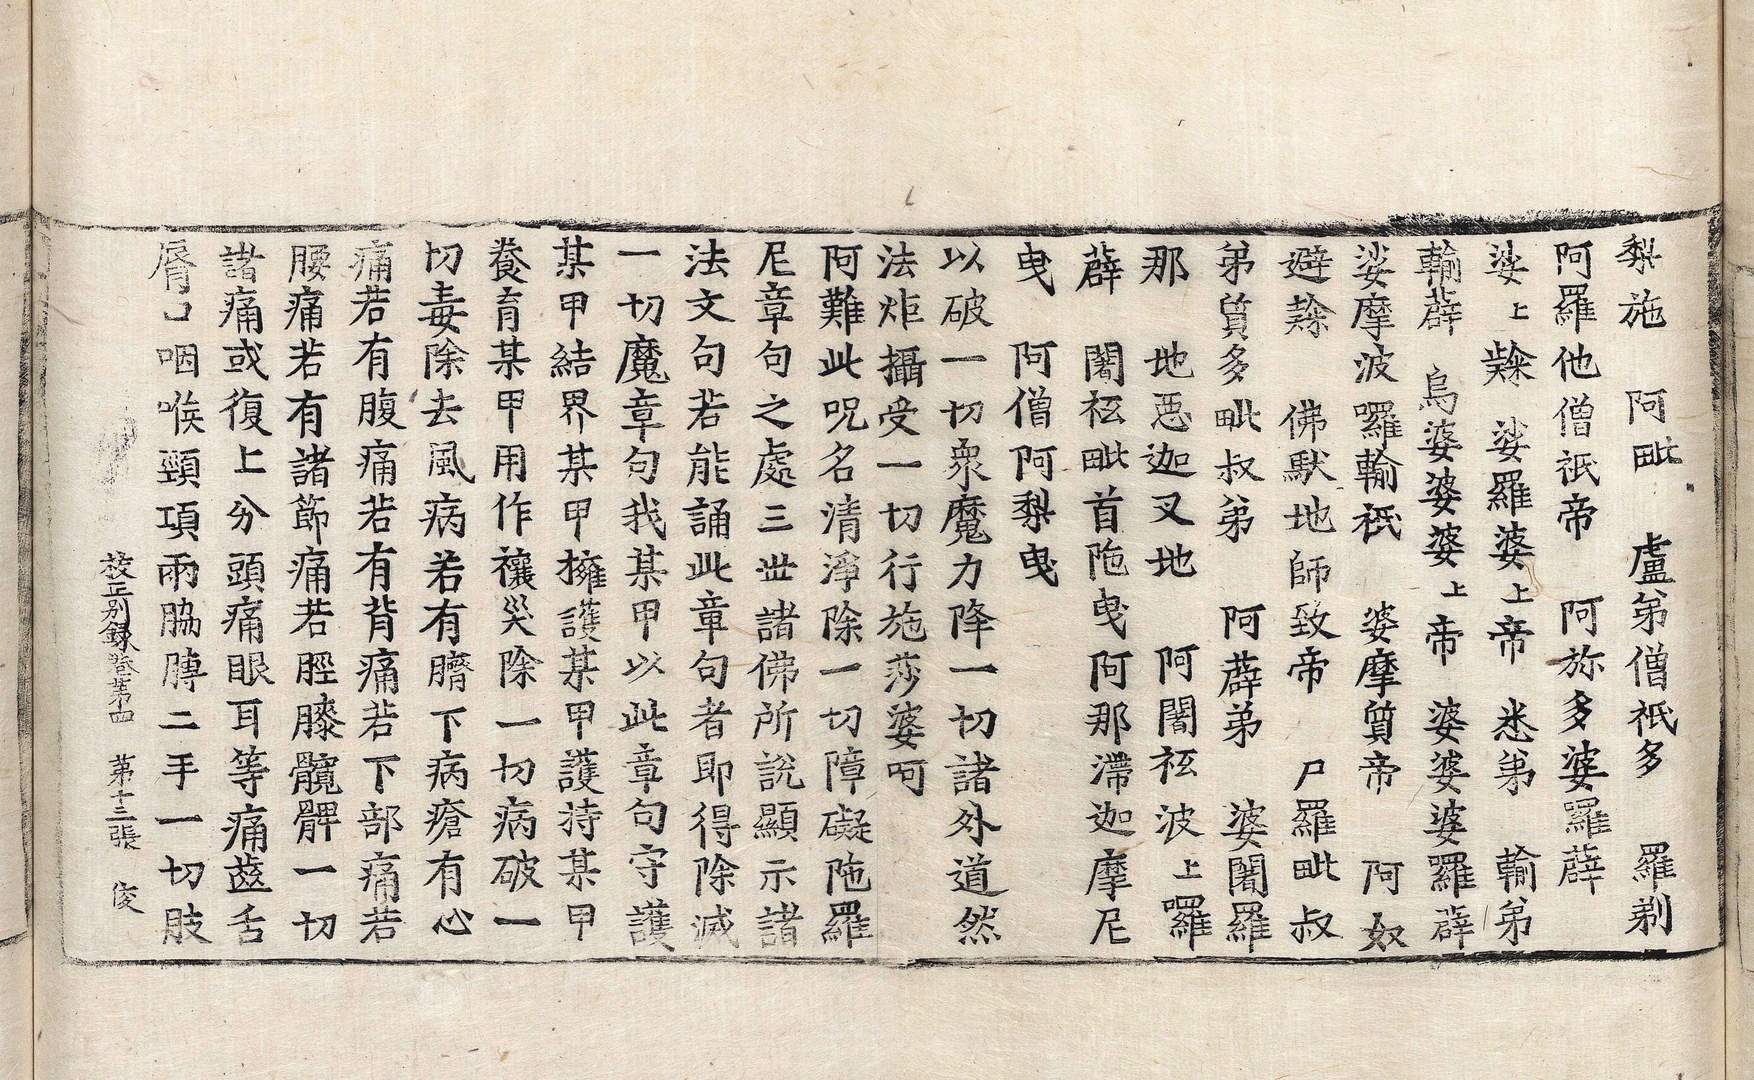 梨施　阿毗　盧弟僧祇多　羅剃
阿羅他僧祇帝　阿旀多婆羅薜
娑上𪗨　娑羅婆上帝　悉弟　輸弟
輸薜　烏婆婆婆上帝　婆婆婆羅薜
娑摩波囉輸祇　婆摩質帝　阿奴
避𪗨　佛默地師致帝　尸羅毗叔
弟質多毗叔弟　阿薜弟　婆闍羅
那　地惡迦叉地　阿闍祛波上囉
薜　闍祛毗首陁曳阿那滯迦摩尼
曳　阿僧阿梨曳
以破一切衆魔力降一切諸外道然
法炬攝受一切行施莎婆呵
阿難此呪名清淨除一切障礙陁羅
尼章句之處三世諸佛所說顯示諸
法文句若能誦此章句者即得除滅
一切魔章句我某甲以此章句守護
某甲結界某甲擁護某甲護持某甲
養育某甲用作禳災除一切病破一
切毒除去風病若有臍下病瘡有心
痛若有腹痛若有背痛若下部痛若
腰痛若有諸節痛若脛膝髖髀一切
諸痛或復上分頭痛眼耳等痛齒舌
脣口咽喉頸項兩脇膊二手一切肢
校正別錄卷第四　第十三張　俊